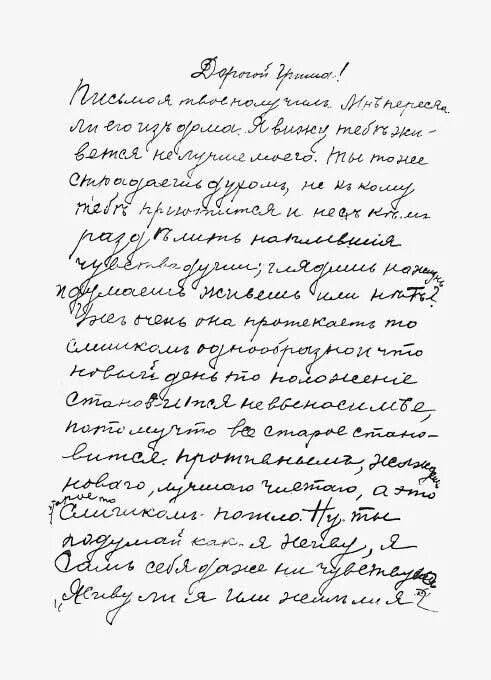 Дорогой Гриша!
Письмо я твое получилъ. Мнѣ пересла-
ли его изъ дома. Я вижу тебѣ жи-
вется не лучше моего. Ты тоже
страдаешь духомъ, не къ кому
тебѣ приютится и не съ кѣмъ
раздѣлить накопившiя
чувства души; глядишь на жизнь
подумаешь живешь или нѣтъ?
Ужъ очень она протекаетъ то
слишкомъ однообразно и что
новый день то положенiе
становится невыносимѣе,
потому что все старое стано-
вится противнымъ, жаждешь
новаго, лучшаго чистаго, а это
старое то
слишкомъ пошло. Ну ты
подумай как я живу, я
самъ себя даже ни чувствую
"Живу ли я или немъ ли я"